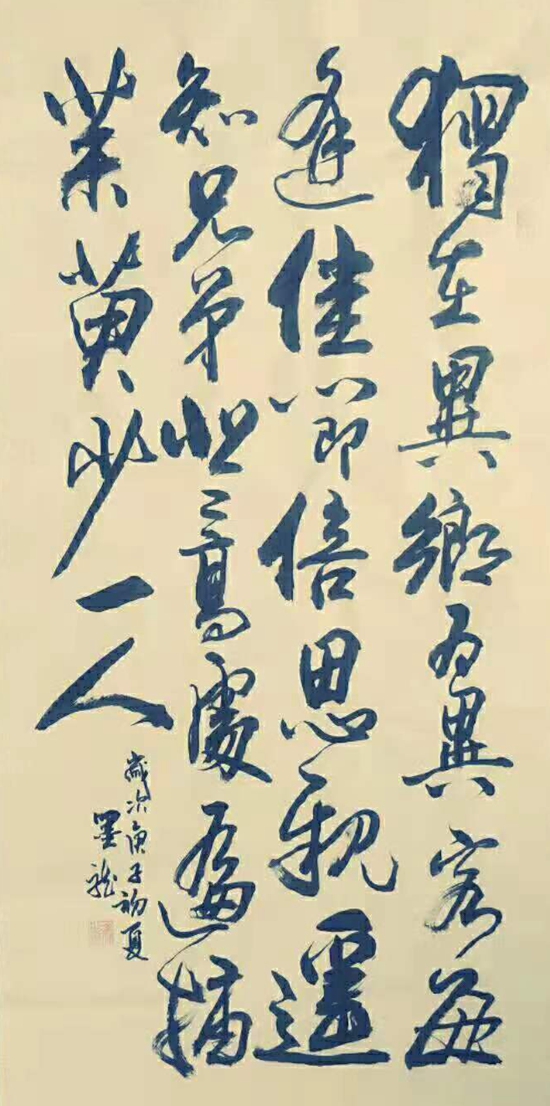 獨在異鄉為異客每
逢佳節倍思親遙
知兄弟登高處遍插
茱萸少一人
歲次庚子初夏
墨龍